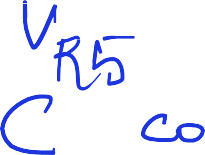 V
R5
C co